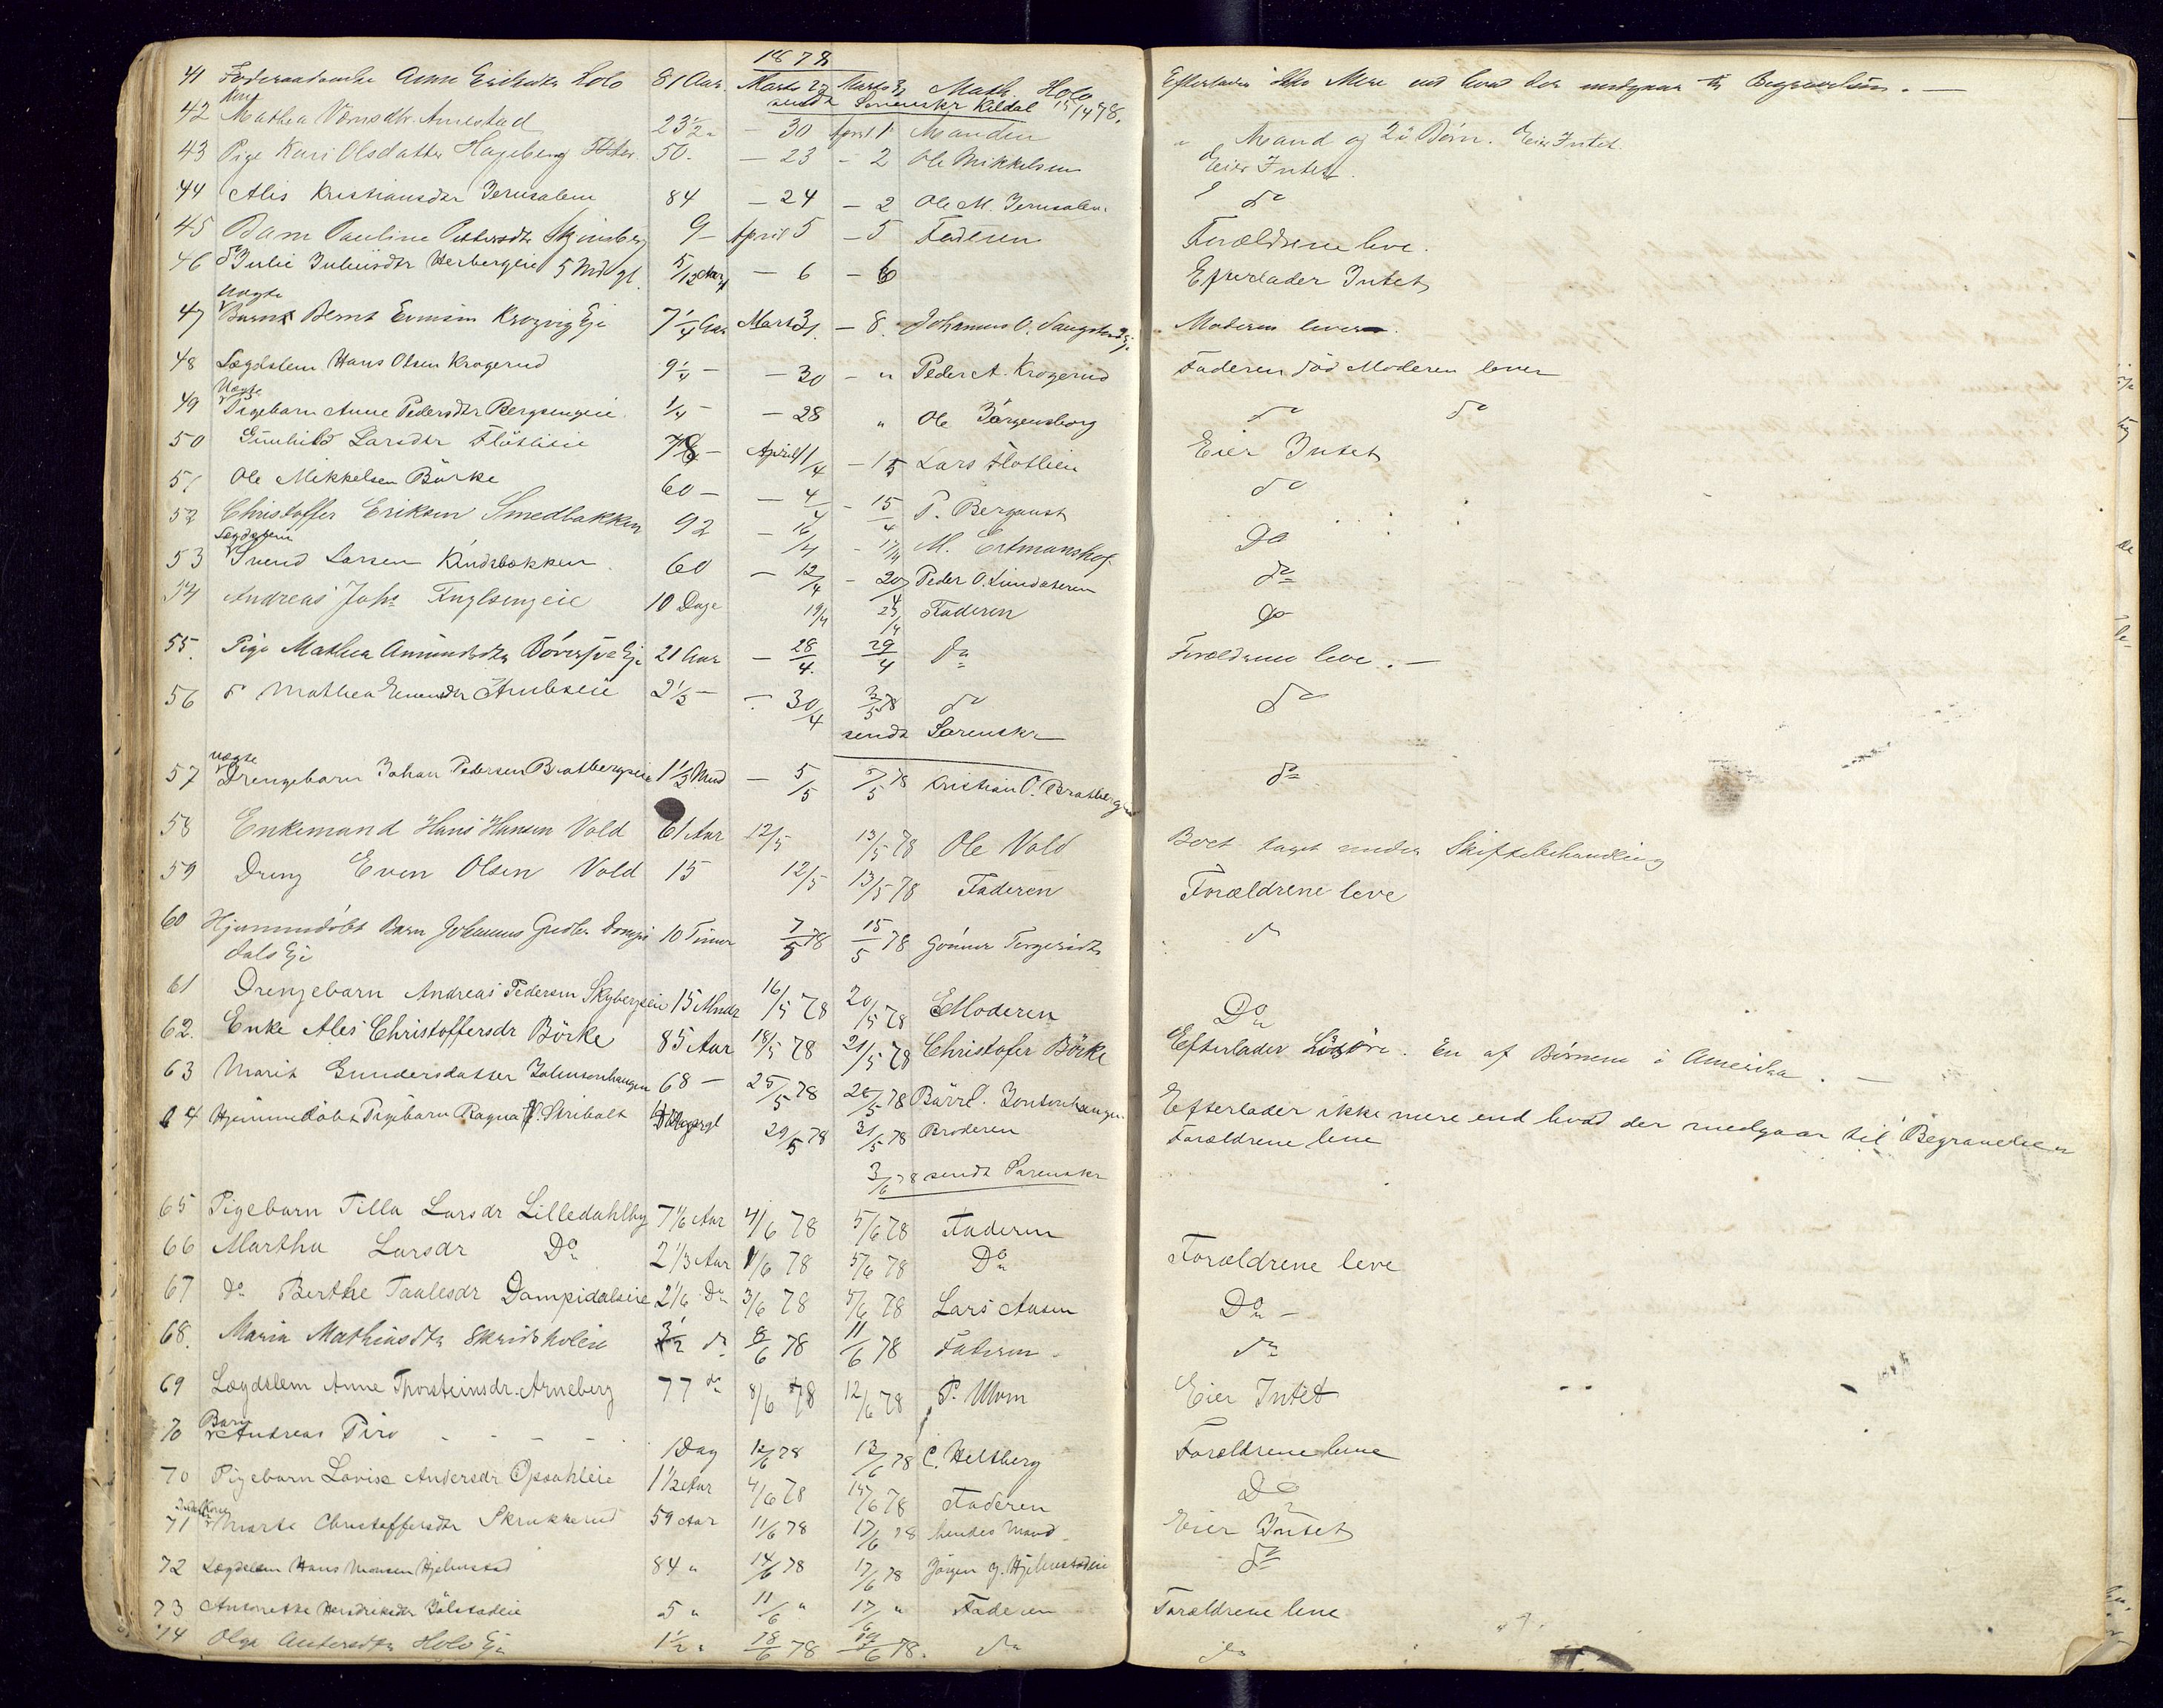 1878
41 Føderaadsenke Anne Eriksdtr Holo 81 Aar. Marts 27 Marts 3 Math. Holo Efterlader ikke Mere end hvad der medgaar til Begravelsen. —
sendt Sorenskr Kildal 15/4 78.
Kone
42 Mathea Arnestad 23 1/2 " — 30 April 1 Manden " Mand og 2 Børn. Eier Intet.
43 Pige Kari Olsdatter Hageberg 50. — 23 — 2 Ole Mikkelsen Eier Intet.
44 Alis Kristiansdtr Jerusalem 84 — 24 — 2 Ole M. Jerusalem do
45 Barn Pauline Pettersdtr Skjinsberg 9 — April 5 — 5 Faderen Forældrene leve.
46 do Julie Juliusdtr Herbergeie 5 Md gl. 5/12 Aar — 6 — 6 Efterlader Intet
Uægte
47 Barn Bernt Evensen Krogvig Eje 7 1/4 Aar Marts 31. — 8. Johannes O. Moderen lever.
48 Lægdslem Hans Olsen Krogerud 9 1/4 — — 30 — " Peder A. Krogerud Faderen død Moderen lever
Uægte
49 Pigebarn Anne Pedersdtr Bergsengeie 1/4 — — 28 " Ole Jørgensborg do do
50 Gunhild Larsdtr Flotlieie 78 — April 11/4 — 15 Lars Flotlien Eier Intet
51 Ole Mikkelsen Børke 60 — — 4/4 — 15/4 P. Bergqvist do
52 Christoffer Eriksen Smedbakken 92 — 16/4 — 17/4 M. Ertmanshof. Do
Lægdslem
53 Svend Larsen Kindsbakken 60 — 12/4 — 20/4 Peder O. Lundsæteren do
54 Andreas Johs Englsengeie 10 Dage 19/4 Faderen do
55. Pige Mathea Amundsdtr Eje 21 Aar — 28/4. 29/4 do Forældrene leve. —
56 do Mathea Evensdtr 2 1/2 — — 30/4 3/5 78 do do
sendt Sorenskr
uægte
57 Drengebarn Johan Pedersen Bratbergseie 1 1/2 Mnd — 5/5 5/5 78 Kristian O. Bratberg do
58 Enkemand Hans Hansen Vold 61 Aar 12/5 13/5 78 Ole Vold Boet taget under Skiftebehandling
59 Dreng Even Olsen Vold 15 12/5 13/5 78 Faderen Forældrene leve
60 Hjemmedøbt Barn Johannes Gudbr. Dompi 10 Timer 7/5 78 15/5 78 Gunner Torgersdtr do
dals Eje
61 Drengebarn Andreas Pedersen Skybergseie 15 Mndr 16/5 78 20/5 78 Moderen Do
62. Enke Ales Christoffersdr Börke 85 Aar 18/5 78 21/5 78 Christofer Börke Efterlader Løsøre. En af Børnene i Amerika. —
63 Marit Gundersdatter Johnsonhaugen 68 — 25/5 78 28/5 78 Bärre J. Jonsonhaugen. Efterlader ikke mere end hvad der medgaar til Begravelsen
64 Hjemmedøbt Pigebarn Ragna F. Stribolt 29/5 78 31/5 78 Broderen Forældrene leve
3/6 78 sendt Sorenskr
65 Pigebarn Tilla Larsdr Lilledahlby 7 1/6 Aar 4/6 78 5/6 78 Faderen
66 Martha Larsdr Do 2 1/3 Aar 1/6 78 5/6 78 Do Forældrene leve
67 do Berthe Paulesdr Dampidalseie 2 1/6 Do 3/6 78 5/6 78 Lars Aasen Do —
68. Maria Mathiasdtr Skridsholeie 3 1/2 do 8/6 78 11/6 78 Faderen — do
69 Lægdslem Anne Thorsteinsdr. Arneberg 77 do 8/6 78 12/6 78 P. Ulvm Eier Intet
Barn
70 Andreas Piro 1 Dag 12/6 78 13/6 78 C. Heltberg Forældrene leve
70 Pigebarn Lovise Andersdr Opsahleie 1 1/2 Aar 4/6 78 14/6 78 Faderen Do
71 Marte Christoffersdtr Skrukkerud 59 Aar 11/6 78 17/6 78 hendes Mand Eier Intet
72 Lægdslem Hans Monsen Hjelmstad 84 " 14/6 78 17/6 78 Jörgen J. Hjelmstadeie do
73 Antonette Hendriksdr Jölstadeie 5 " 11/6 " 17/6 " Faderen Forældrene leve
74 Olga Andersdtr Holo Eje 1 1/2 " 18/6 78 19/6 78. do do